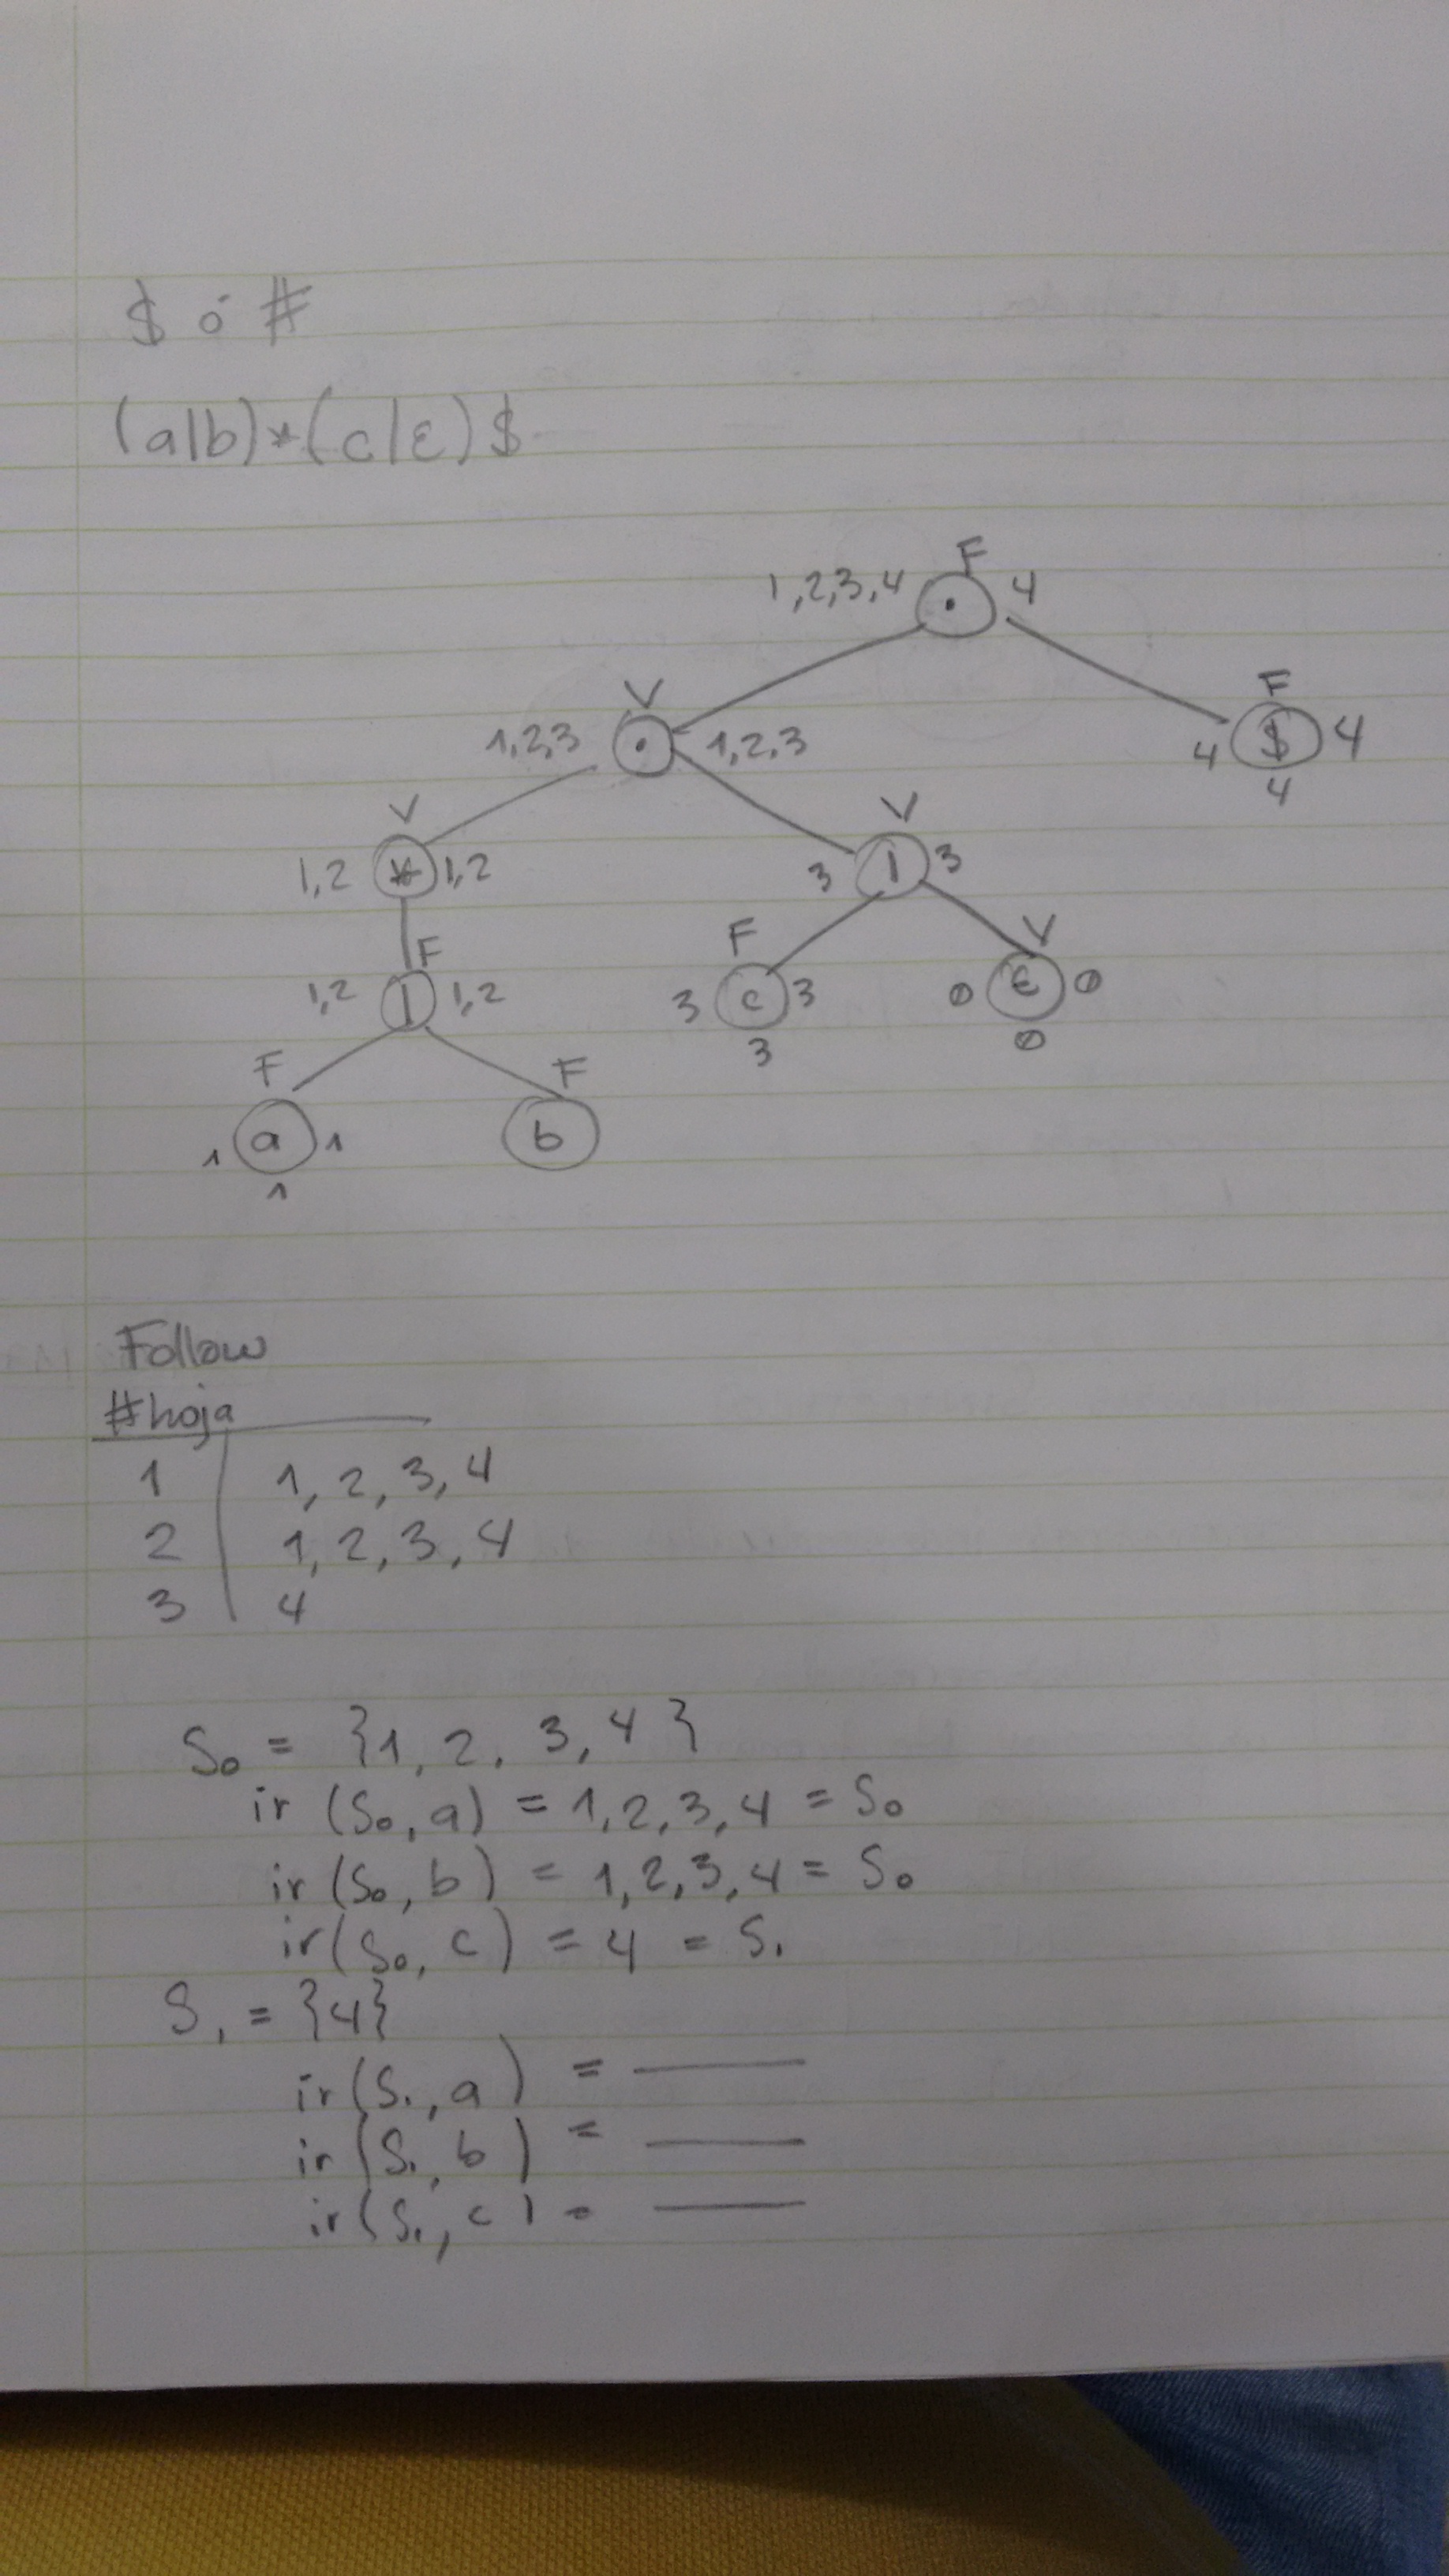 $ ó #
(a|b)*(c|ε)$
F
1,2,3,4 • 4
V
F
1,2,3 • 1,2,3
4 $ 4
4
V
V
1,2 * 1,2
3 | 3
F
F
V
1,2 | 1,2
3 c 3
0 ε 0
3
0
F
F
1 a 1
b
1
Follow
#hoja
1 1, 2, 3, 4
2 1, 2, 3, 4
3 4
S0 = {1, 2, 3, 4}
ir (S0, a) = 1,2,3,4 = S0
ir (S0, b) = 1,2,3,4 = S0
ir (S0, c) = 4 = S1
S1 = {4}
ir (S1, a) = ——
ir (S1, b) = ——
ir (S1, c) = ——